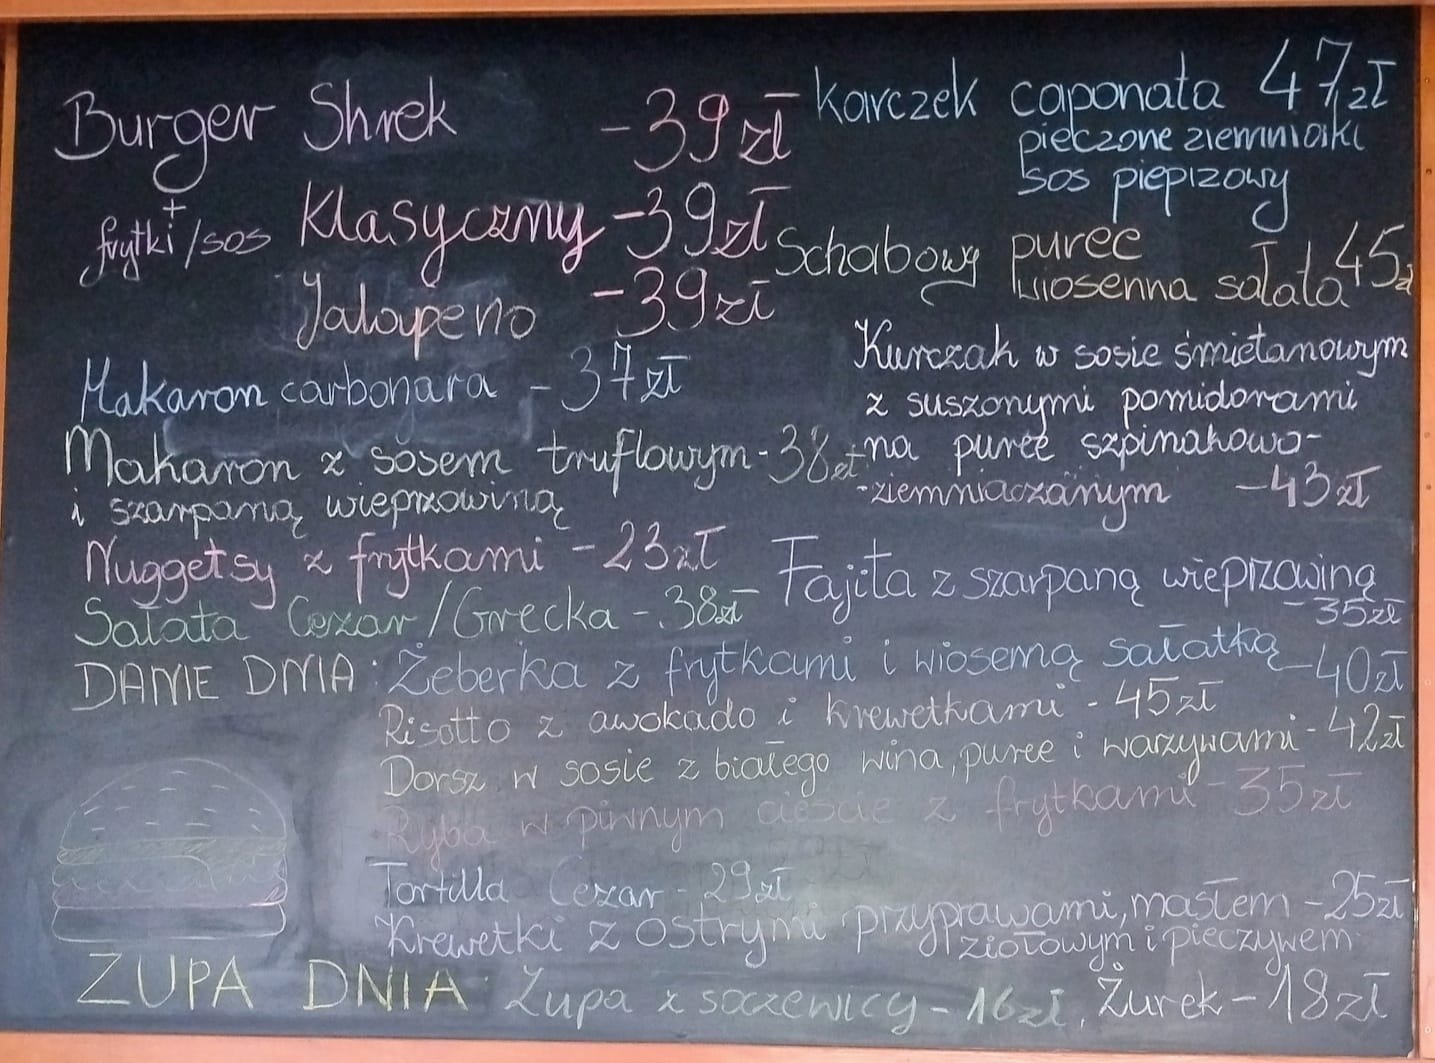 Burger Shrek -39zł
+
frytki/sos Klasyczny -39zł
Jalapeno -39zł
Makaron carbonara - 37zł
Makaron z sosem truflowym - 38zł
i szarpaną wieprzowiną
Nuggetsy z frytkami - 23zł
Sałata Cezar/Grecka - 38zł
Karczek caponata 47zł
pieczone ziemniaki
sos pieprzowy
Schabowy puree
wiosenna sałata 45zł
Kurczak w sosie śmietanowym
z suszonymi pomidorami
na puree szpinakowo-
-ziemniaczanym -43zł
Fajita z szarpaną wieprzowiną
- 35zł
DANIE DNIA: Żeberka z frytkami i wiosenną sałatką - 40zł
Risotto z awokado i krewetkami - 45zł
Dorsz w sosie z białego wina, puree i warzywami - 42zł
Ryba w piwnym cieście z frytkami - 35zł
Tortilla Cezar - 29zł
Krewetki z ostrymi przyprawami, masłem - 25zł
ziołowym i pieczywem
ZUPA DNIA: Zupa z soczewicy - 16zł, Żurek - 18zł